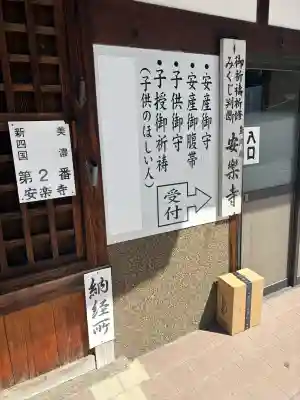 美濃
新四国
第2番
安楽寺
・安産御守
・安産御腹帯
・子供御守
・子授御祈祷
(子供のほしい人)
受付
御祈祷祈修
みくじ判断
安楽寺
入口
納経所